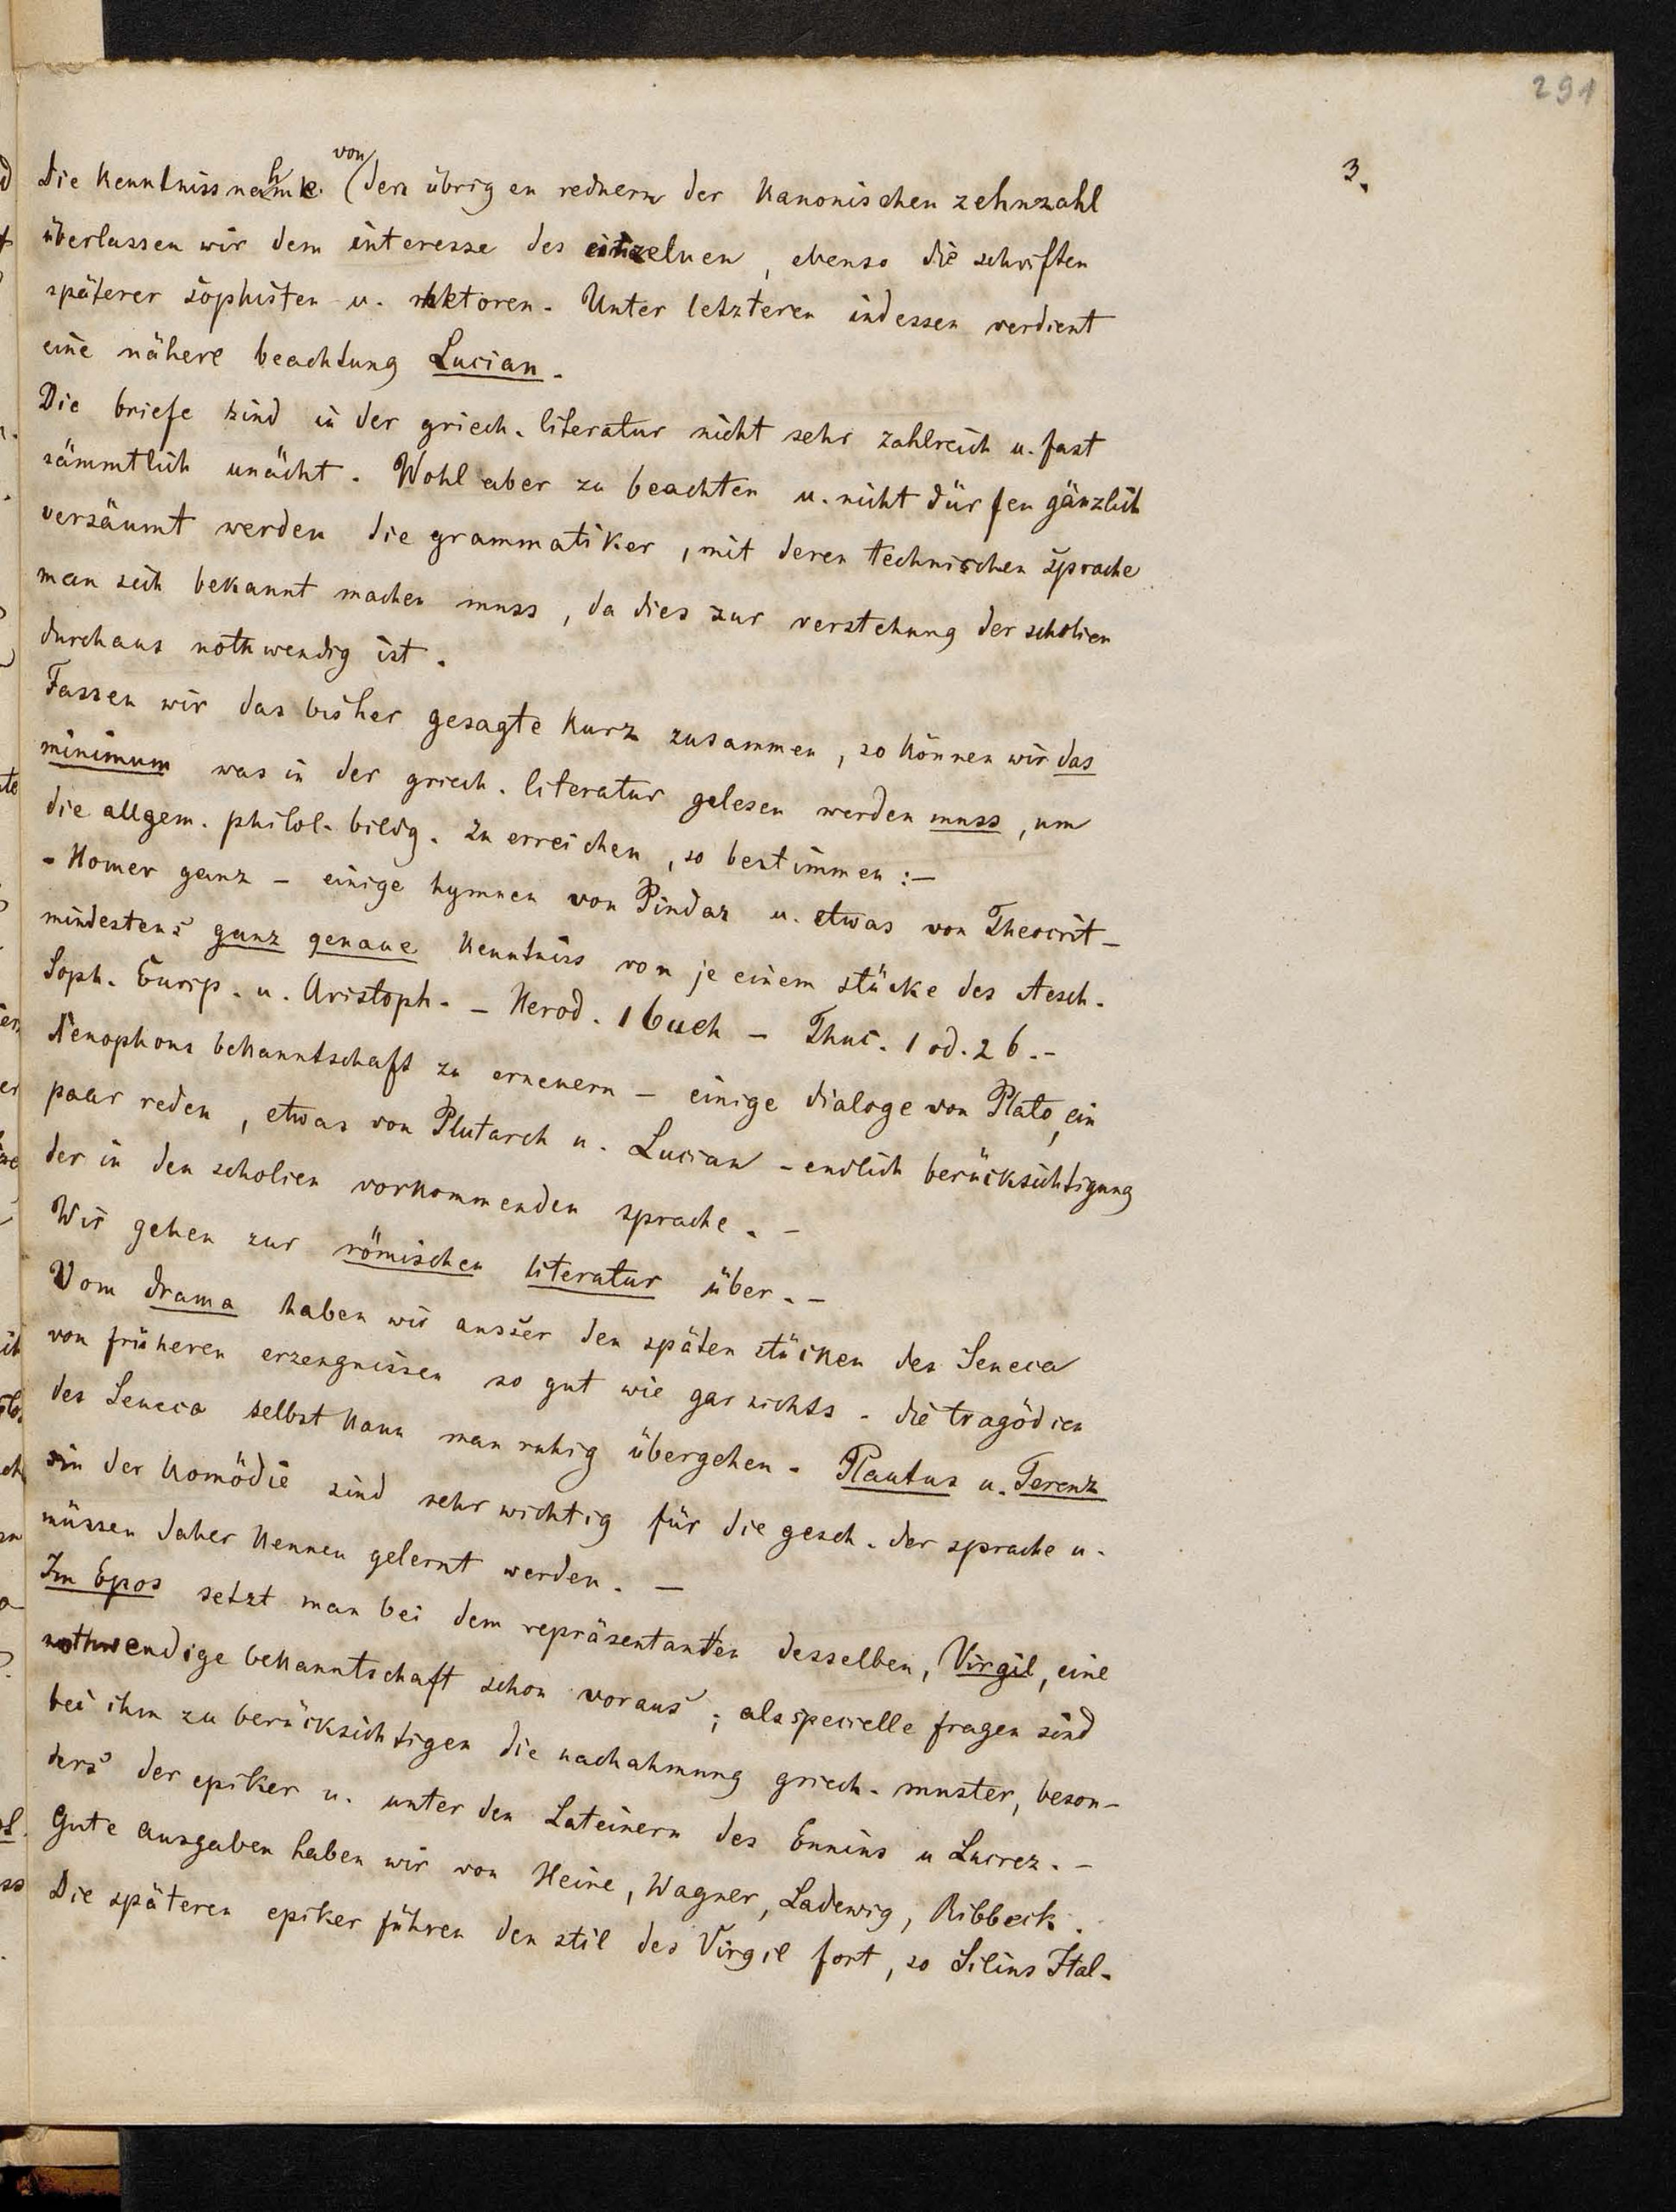 291
3.
die kenntnissnahme von den übrigen rednern der kanonischen zehnzahl
überlassen wir dem interesse des einzelnen, ebenso die schriften
späterer sophisten u. rhetoren. Unter letzteren indessen verdient
eine nähere beachtung Lucian.
Die briefe sind in der griech. literatur nicht sehr zahlreich u. fast
sämmtlich unächt. Wohl aber zu beachten u. nicht dürfen gänzlich
versäumt werden die grammatiker, mit deren technischen sprache
man sich bekannt machen muss, da dies zur verstehung der scholien
durchaus nothwendig ist.
Fassen wir das bisher gesagte kurz zusammen, so können wir das
minimum was in der griech. literatur gelesen werden muss, um
die allgem. philol. bildg. zu erreichen, so bestimmen:—
- Homer ganz - einige hymnen von Pindar u. etwas von Theocrit -
mindestens ganz genaue kenntniss von je einem stücke des Aesch.
Soph. Eurip. u. Aristoph. - Herod. 1 buch - Thuc. 1 od. 2 b. -
Xenophons bekanntschaft zu erneuern - einige dialoge von Plato, ein
paar reden, etwas von Plutarch u. Lucian - endlich berücksichtigung
der in den scholien vorkommenden sprache. -
Wir gehen zur römischen literatur über. -
Vom drama haben wir ausser den späten stücken des Seneca
von früheren erzeugnissen so gut wie gar nichts. die tragödien
des Seneca selbst kann man ruhig übergehen. Plautus u. Terenz
in der komödie sind sehr wichtig für die gesch. der sprache u.
müssen daher kennen gelernt werden. —
Im Epos setzt man bei dem repräsentanten desselben, Virgil, eine
nothwendige bekanntschaft schon voraus; als specielle fragen sind
bei ihm zu berücksichtigen die nachahmung griech. muster, beson-
ders der epiker u. unter den Lateinern des Ennius u Lucrez. -
Gute ausgaben haben wir von Heine, Wagner, Ladewig, Ribbeck.
Die späteren epiker führen den stil des Virgil fort, so Silius Ital.